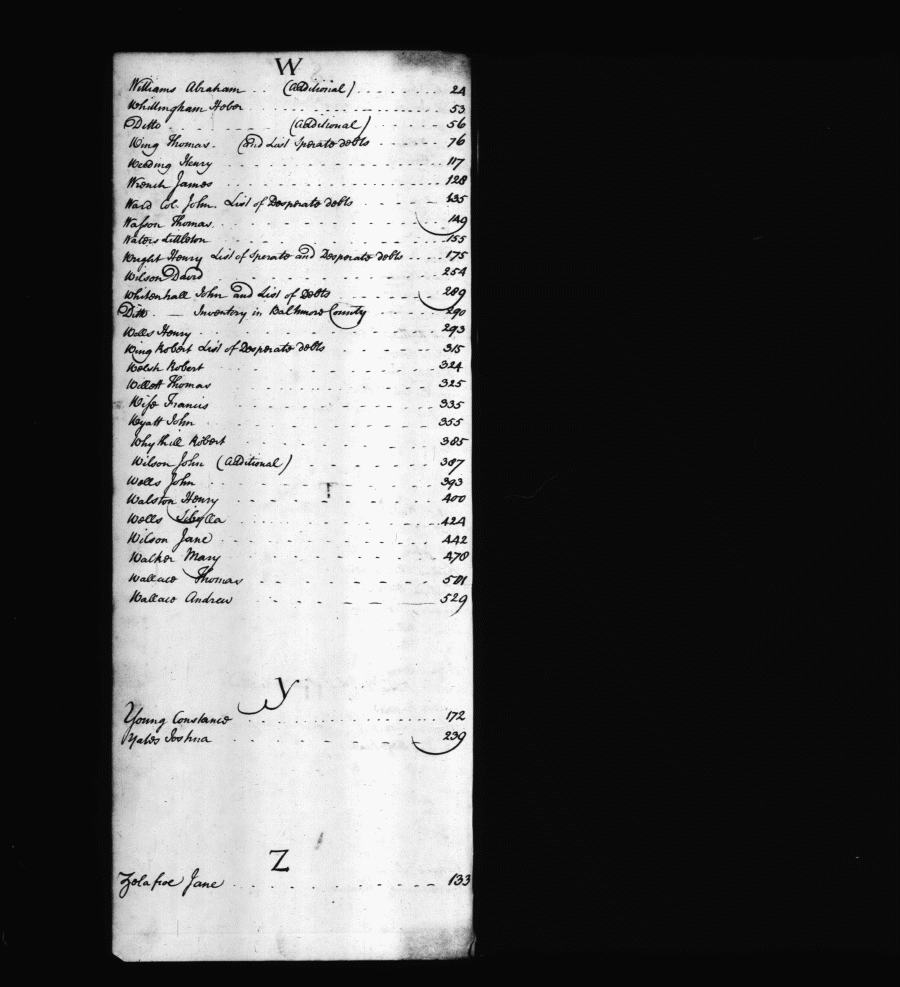 W
Williams Abraham (Additional) 24
Whittingham Heber 53
Ditto (Additional) 56
Wing Thomas. and List Sperate debts 76
Weeding Henry 117
Wrench James 128
Ward Col. John. List of Desperate debts 135
Waſson Thomas 149
Waters Littleton 155
Wright Henry List of Sperate and Desperate debts 175
Wilson David 254
Whitenhall John and List of Debts 289
Ditto — Inventory in Baltimore County 290
Wells Henry 293
Wing Robert List of Desperate debts 315
Welsh Robert 324
Willett Thomas 325
Wiſe Francis 335
Wyatt John 355
Robert 385
Wilson John (Additional) 387
Wells John 393
Walston Henry 400
Wells Sibylla 424
Wilson Jane 442
Walker Mary 478
Wallace Thomas 501
Wallace Andrew 529
Y
Young Constance 172
Yates Joshua 239
Z
Jane 133